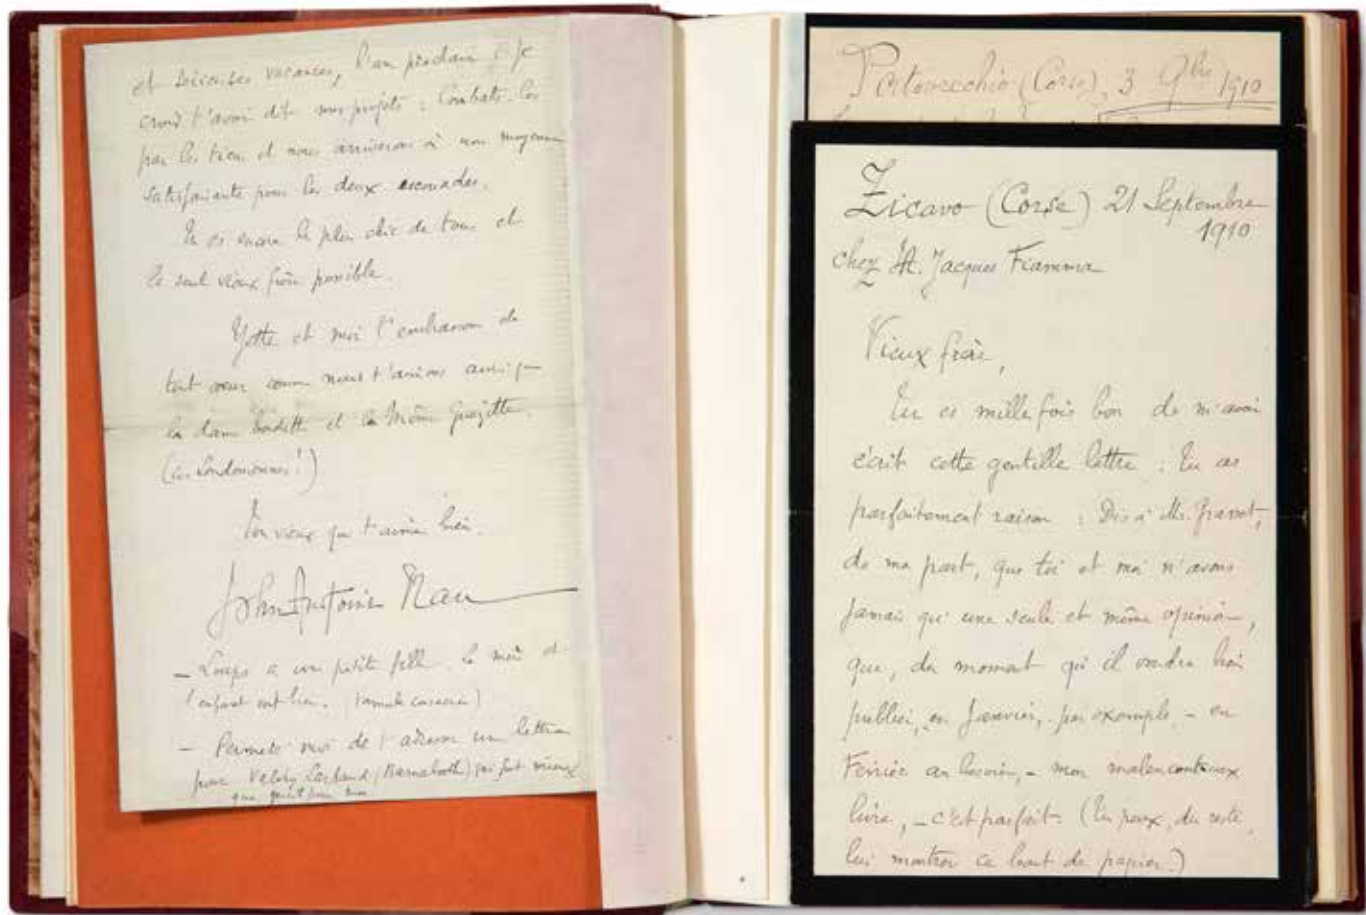 et sérieuses vacances, l'an prochain. Je
crois t'avoir dit mes projets : Combats-les
par les tiens et nous arriverons à une moyenne
satisfaisante pour les deux escouades.
Tu es encore le plus chic de tous et
le seul vieux frère possible.
Yotte et moi t'embrassons de
tout cœur comme nous t'aimons ainsi que
la dame et la Môme
(ces Londoniennes !)
Ton vieux qui t'aime bien.
John-Antoine Nau
— Loups a une petite fille. la mère et
l'enfant vont bien. (formule consacrée)
— Permets-moi de t'adresser une lettre
pour Valéry Larbaud (Barnabooth) qui fut mieux
que gentil pour moi
Portovecchio (Corse), 3 9bre 1910
Zicavo (Corse) 21 Septembre
1910
chez M. Jacques Fiamma
Vieux frère,
Tu es mille fois bon de m'avoir
écrit cette gentille lettre : Tu as
parfaitement raison : Dis à Mr. Gravot,
de ma part, que toi et moi n'avons
jamais qu'une seule et même opinion,
que, du moment qu'il voudra bien
publier, en Janvier, par exemple, – en
Février au besoin, – mon malencontreux
livre, – c'est parfait. (Tu peux, du reste,
lui montrer ce bout de papier.)